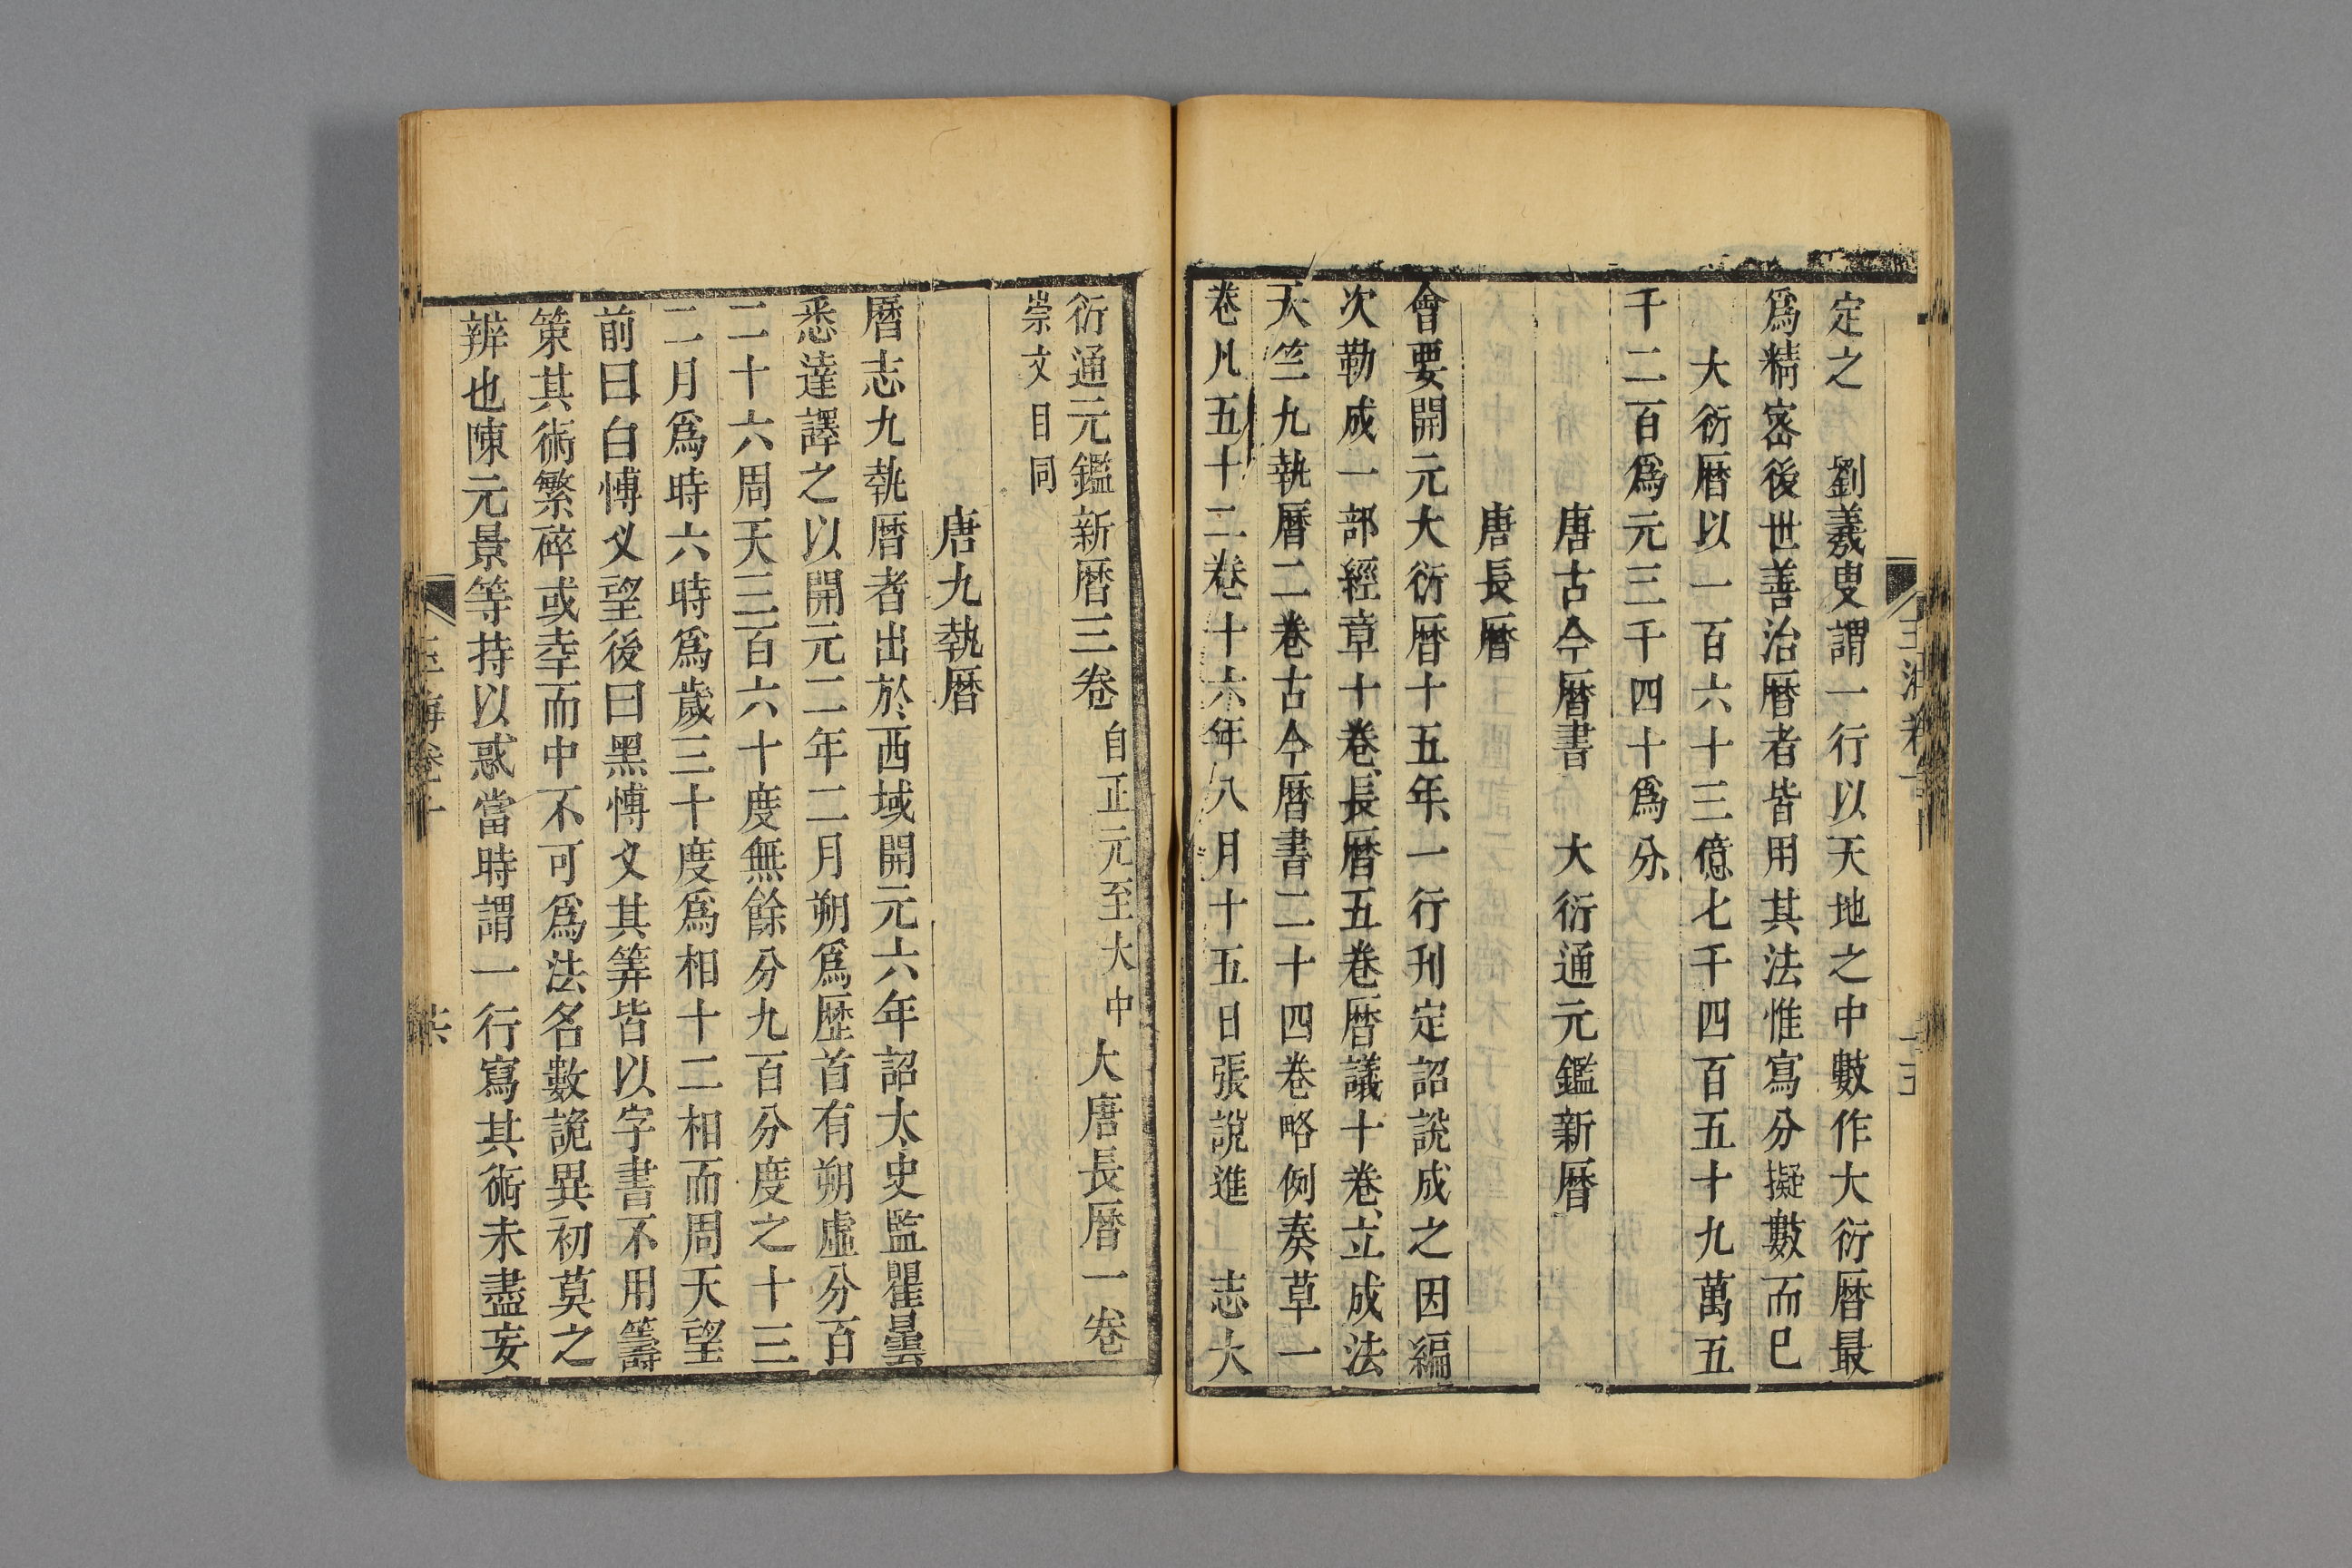 定之 劉羲叟謂一行以天地之中數作大衍曆最
爲精宻後世善治曆者皆用其法惟寫分擬數而巳
大衍曆以一百六十三億七千四百五十九萬五
千二百爲元三千四十爲分
唐古今曆書 大衍通元鑑新曆
唐長曆
會要開元大衍曆十五年一行刋定詔說成之因編
次勒成一部經章十卷長曆五卷曆議十卷立成法
天竺九執曆二卷古今曆書二十四卷略例奏草一
卷凡五十二卷十六年八月十五日張說進上 志大
衍通元鑑新曆三卷自正元至大中大唐長曆一卷
崇文目同
唐九執曆
曆志九執曆者出於西域開元六年詔太史監瞿曇
悉達譯之以開元二年二月朔爲歷首有朔虛分百
二十六周天三百六十度無餘分九百分度之十三
二月爲時六時爲歲三十度爲相十二相而周天望
前曰白愽义望後曰黑愽文其筭皆以字書不用籌
策其術繁碎或幸而中不可爲法名數詭異初莫之
辨也陳元景等持以惑當時謂一行寫其術未盡妄
玉海卷十